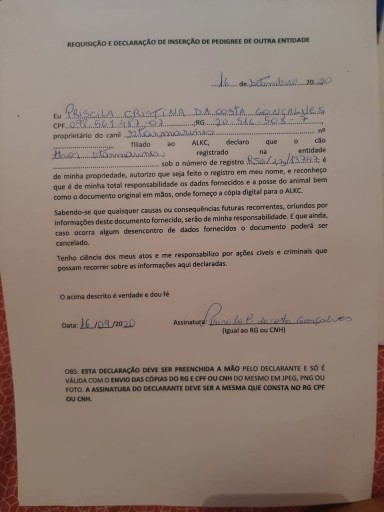 REQUISIÇÃO E DECLARAÇÃO DE INSERÇÃO DE PEDIGREE DE OUTRA ENTIDADE
16 de Setembro 20 20
Eu PRISCILA CRISTINA DA COSTA GONÇALVES
CPF ;RG
proprietário do canil nº
filiado ao ALKC, declaro que o cão
registrado na entidade
sob o número de registro é
de minha propriedade, autorizo que seja feito o registro em meu nome, e reconheço
que é de minha total responsabilidade os dados fornecidos e a posse do animal bem
como o documento original em mãos, onde forneço a cópia digital para o ALKC.
Sabendo-se que quaisquer causas ou consequências futuras recorrentes, oriundos por
informações deste documento fornecido, serão de minha responsabilidade. E que ainda,
caso ocorra algum desencontro de dados fornecidos o documento poderá ser
cancelado.
Tenho ciência dos meus atos e me responsabilizo por ações cíveis e criminais que
possam recorrer sobre as informações aqui declaradas.
O acima descrito é verdade e dou fé
Data: 16/09/2020 Assinatura: Priscila C. da Costa Gonçalves
(Igual ao RG ou CNH)
OBS: ESTA DECLARAÇÃO DEVE SER PREENCHIDA A MÃO PELO DECLARANTE E SÓ É
VÁLIDA COM O ENVIO DAS CÓPIAS DO RG E CPF OU CNH DO MESMO EM JPEG, PNG OU
FOTO. A ASSINATURA DO DECLARANTE DEVE SER A MESMA QUE CONSTA NO RG CPF
OU CNH.